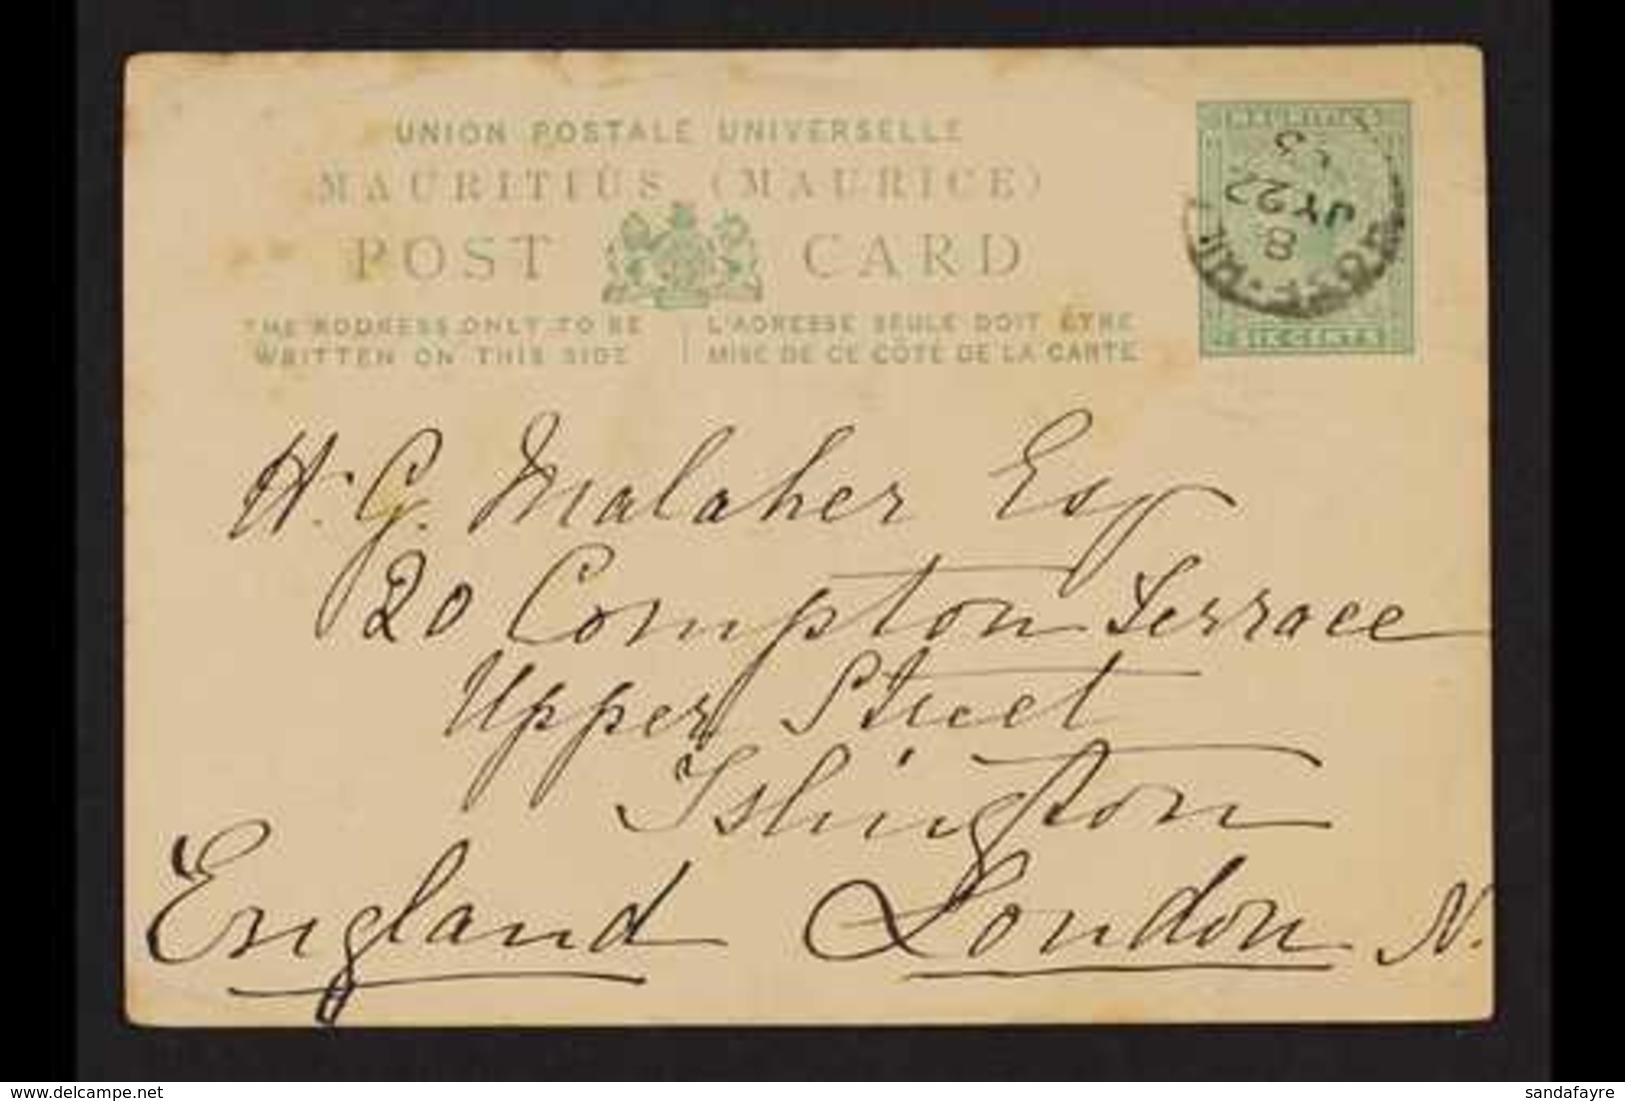 UNION POSTALE UNIVERSELLE
MAURITIUS (MAURICE)
POST CARD
THE ADDRESS ONLY TO BE
WRITTEN ON THIS SIDE
L'ADRESSE SEULE DOIT ÊTRE
MISE DE CE CÔTÉ DE LA CARTE
MAURITIUS
SIX CENTS
8
JY 22
H. G. Malaher Esq
20 Compton Terrace
Upper Street
Islington
England London N.
delcampe.net
sandafayre